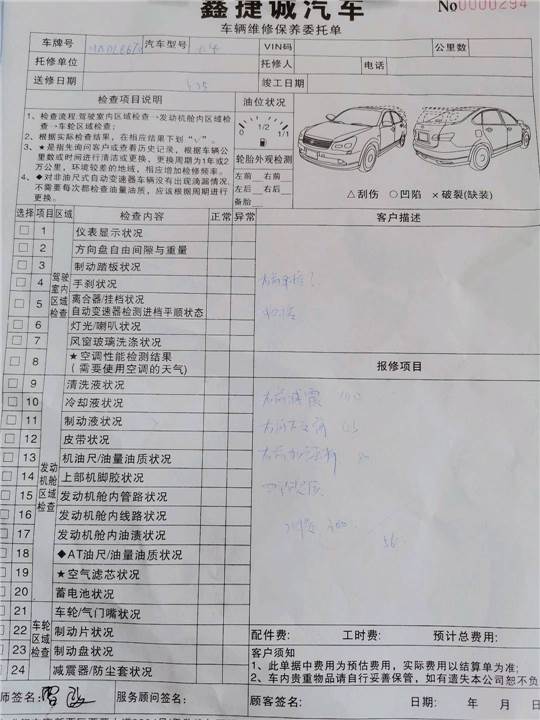 鑫捷诚汽车
No0000294
车辆维修保养委托单
车牌号 汽车型号 VIN码 公里数
托修单位 托修人 电话
送修日期 竣工日期
检查项目说明
1、检查流程:驾驶室内区域检查→发动机舱内区域检查→车轮区域检查;
2、根据实际检查结果,在相应结果下划“√”。
3、★是指先询问客户或查看历史记录,根据车辆公里数或时间进行清洁或更换,更换周期为1年或2万公里,环境较差的地域,相应增加检修频率。
4、◆对非油尺式自动变速器车辆没有出现滴漏情况,不需要每次都检查油量油质,应该根据周期进行更换。
油位状况
0 1/2 1/1
轮胎外观检测
左前 右前
左后 右后
备胎
△刮伤 ○凹陷 ×破裂(缺装)
选择 项目 区域 检查内容 正常 异常
驾驶室内区域检查
1 仪表显示状况
2 方向盘自由间隙与重量
3 制动踏板状况
4 手刹状况
5 离合器/挂档状况
自动变速器检测进档平顺状态
6 灯光/喇叭状况
7 风窗玻璃洗涤状况
8 ★空调性能检测结果
(需要使用空调的天气)
发动机舱区域检查
9 清洗液状况
10 冷却液状况
11 制动液状况
12 皮带状况
13 机油尺/油量油质状况
14 上部机脚胶状况
15 发动机舱内管路状况
16 发动机舱内线路状况
17 发动机舱内油渍状况
18 ◆AT油尺/油量油质状况
19 ★空气滤芯状况
20 蓄电池状况
车轮区域检查
21 车轮/气门嘴状况
22 制动片状况
23 制动盘状况
24 减震器/防尘套状况
客户描述
报修项目
右前减震
配件费: 工时费: 预计总费用:
客户须知
1、此单据中费用为预估费用,实际费用以结算单为准;
2、车内贵重物品请自行妥善保管,如有遗失本公司恕不负
师签名: 服务顾问签名: 顾客签名: 日期: 年 月